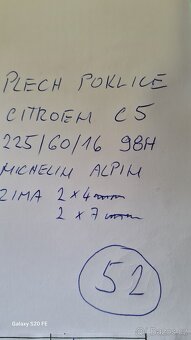 PLECH POKLICE
CITROEM C5
225/60/16 98H
MICHELIM ALPIM
ZIMA 2x4mm
2x7mm
52
Galaxy S20 FE